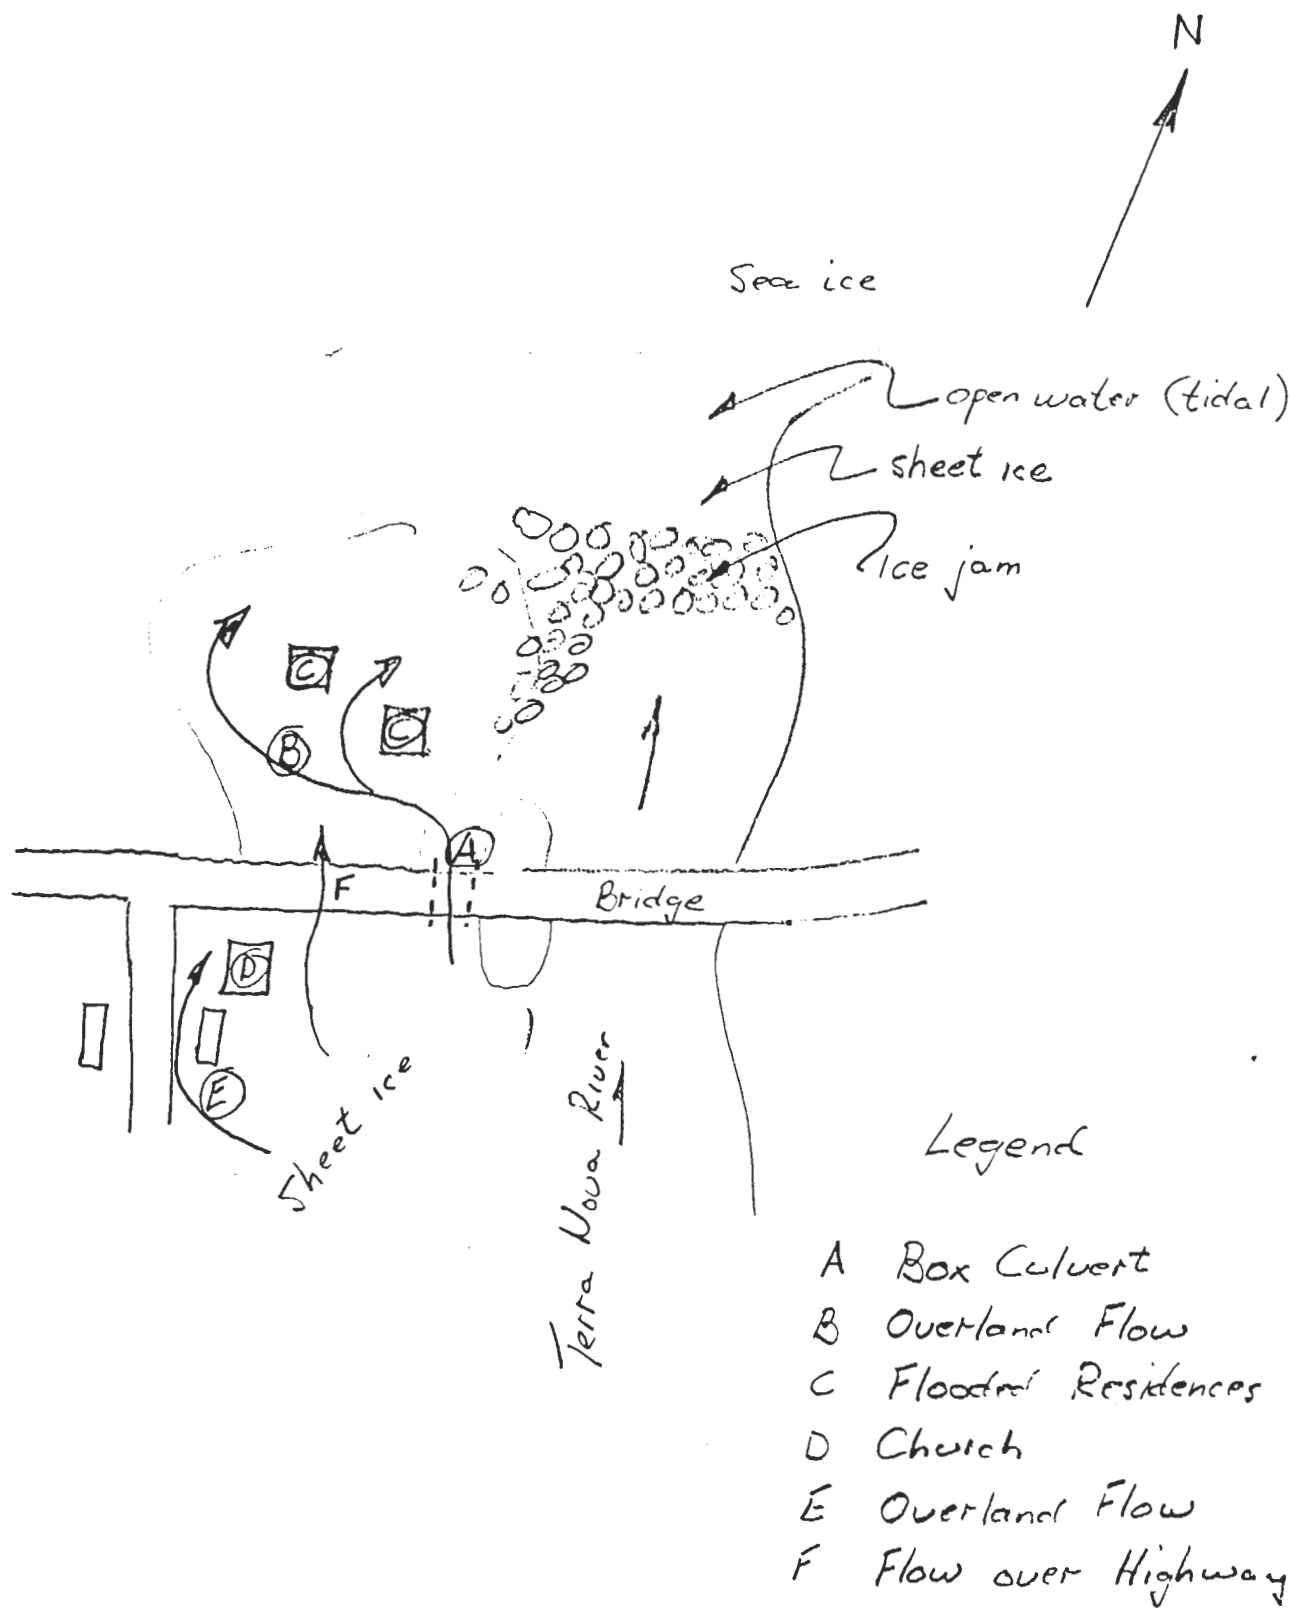 N
Sea ice
open water (tidal)
sheet ice
Ice jam
C
C
B
A
F
Bridge
D
E
Sheet ice
Terra Nova River
Legend
A Box Culvert
B Overland Flow
C Flooded Residences
D Church
E Overland Flow
F Flow over Highway